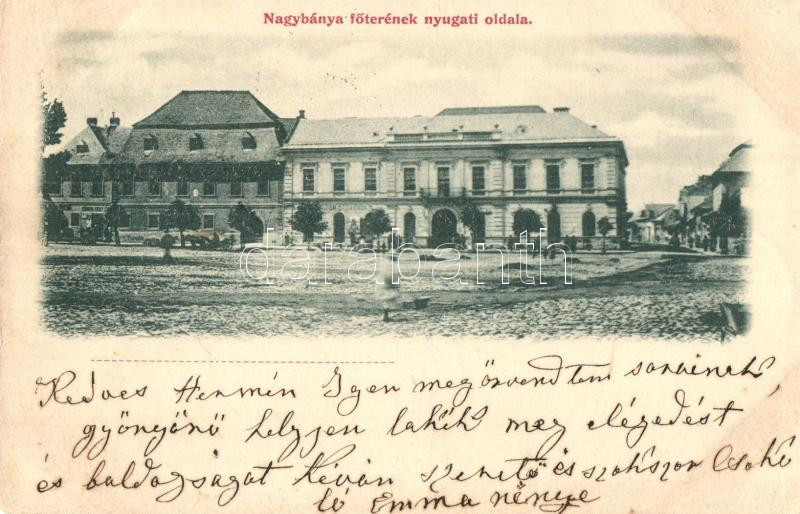 Nagybánya főterének nyugati oldala.
darabanth
Kedves Hermin Igen megörvendtem soraidnak
gyönyörű helyjen lakik meg elégedést
és boldogságot kíván szerető és sokszor csoko
ló Emma nénye